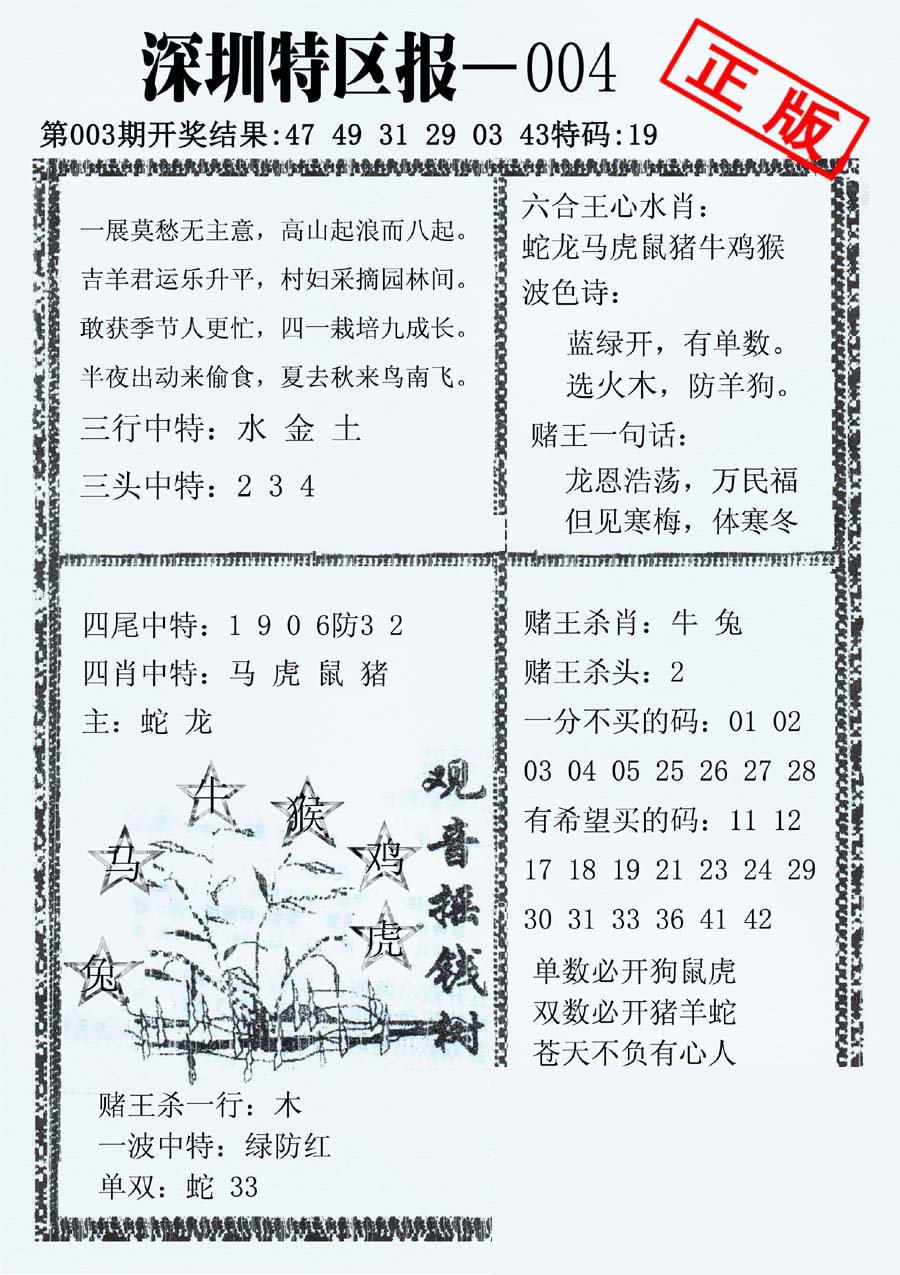 深圳特区报—004
正版
第003期开奖结果:47 49 31 29 03 43特码:19
一展莫愁无主意，高山起浪而八起。
吉羊君运乐升平，村妇采摘园林间。
敢获季节人更忙，四一栽培九成长。
半夜出动来偷食，夏去秋来鸟南飞。
三行中特：水 金 土
三头中特：2 3 4
六合王心水肖：
蛇龙马虎鼠猪牛鸡猴
波色诗：
蓝绿开，有单数。
选火木，防羊狗。
赌王一句话：
龙恩浩荡，万民福
但见寒梅，体寒冬
四尾中特：1 9 0 6防3 2
四肖中特：马 虎 鼠 猪
主：蛇 龙
牛
猴
马
鸡
虎
兔
观音摇钱树
赌王杀一行：木
一波中特：绿防红
单双：蛇 33
赌王杀肖：牛 兔
赌王杀头：2
一分不买的码：01 02
03 04 05 25 26 27 28
有希望买的码：11 12
17 18 19 21 23 24 29
30 31 33 36 41 42
单数必开狗鼠虎
双数必开猪羊蛇
苍天不负有心人